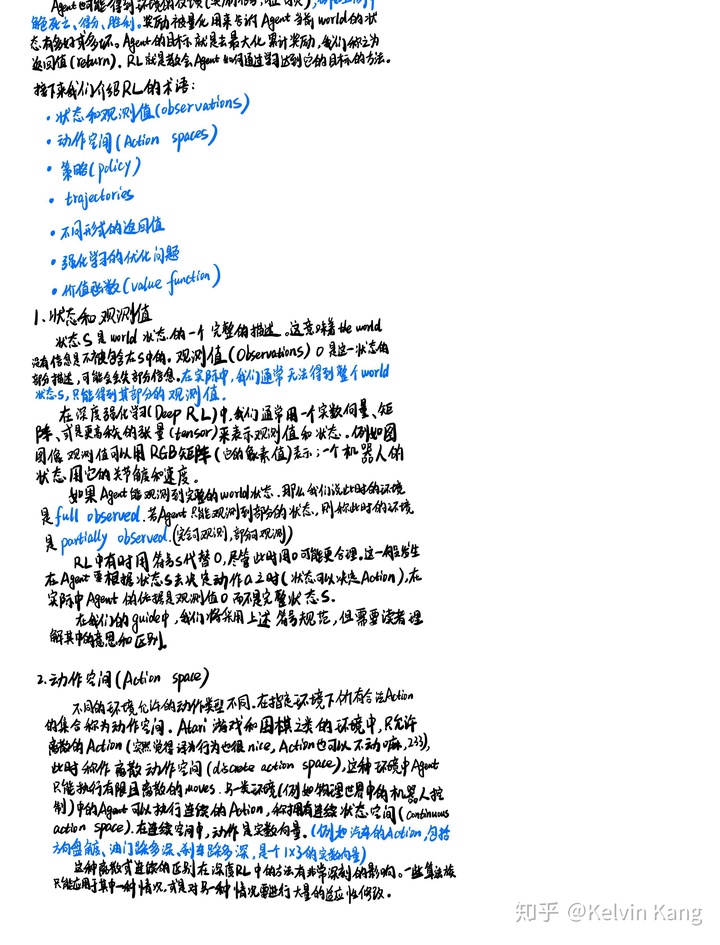 Agent也可能得到环境的反馈
能死亡、得分、胜利。奖励被量化用来告诉Agent当前world的状
态有多好或多坏。Agent的目标就是去最大化累计奖励,我们称之为
返回值(return)。RL就是教会Agent如何通过学习达到它的目标的方法。
接下来我们介绍RL的术语:
• 状态和观测值(observations)
• 动作空间(Action spaces)
• 策略(policy)
• trajectories
• 不同形式的返回值
• 强化学习的优化问题
• 价值函数(value function)
1.状态和观测值
状态S是world状态的一个完整的描述。这意味着the world
没有信息是不被包含在S中的。观测值(Observations)O是这一状态的
部分描述,可能会丢失部分信息。在实际中,我们通常无法得到整个world
状态S,只能得到其部分的观测值。
在深度强化学习(Deep RL)中,我们通常用一个实数向量、矩
阵、或是更高秩的张量(tensor)来表示观测值和状态。例如图
图像观测值可以用RGB矩阵(它的像素值)表示;一个机器人的
状态用它的关节角度和速度。
如果Agent能观测到完整的world状态,那么我们说此时的环境
是full observed.若Agent只能观测到部分的状态,则称此时的环境
是partially observed.(完全可观测,部分可观测)
RL中有时用符号S代替O,尽管此时用O可能更合理。这一般发生
在Agent要根据状态S去决定动作a之时(状态可以决定Action),在
实际中Agent的依据是观测值O而不是完整状态S.
在我们的guide中,我们将采用上述符号规范,但需要读者理
解其中的意思和区别。
2.动作空间(Action space)
不同的环境允许的动作类型不同.在指定环境下所有合法Action
的集合称为动作空间。Atari游戏和围棋之类的环境中,只允许
离散的Action(突然觉得译为行为也很nice,Action也可以不动嘛,233),
此时称作离散动作空间(discrete action space),这种环境中Agent
只能执行有限且离散的moves.另一类环境(例如物理世界中的机器人控
制)中的Agent可以执行连续的Action,称拥有连续状态空间(continuous
action space).在连续空间中,动作是实数向量。(例如汽车的Action,包括
方向盘角度、油门踩多深、刹车踩多深,是个1×3的实数向量)
这种离散或连续的区别在深度RL中的方法有非常深刻的影响。一些算法族
只能应用于其中一种情况,或是对另一种情况要进行大量的适应性修改。
知乎 @Kelvin Kang